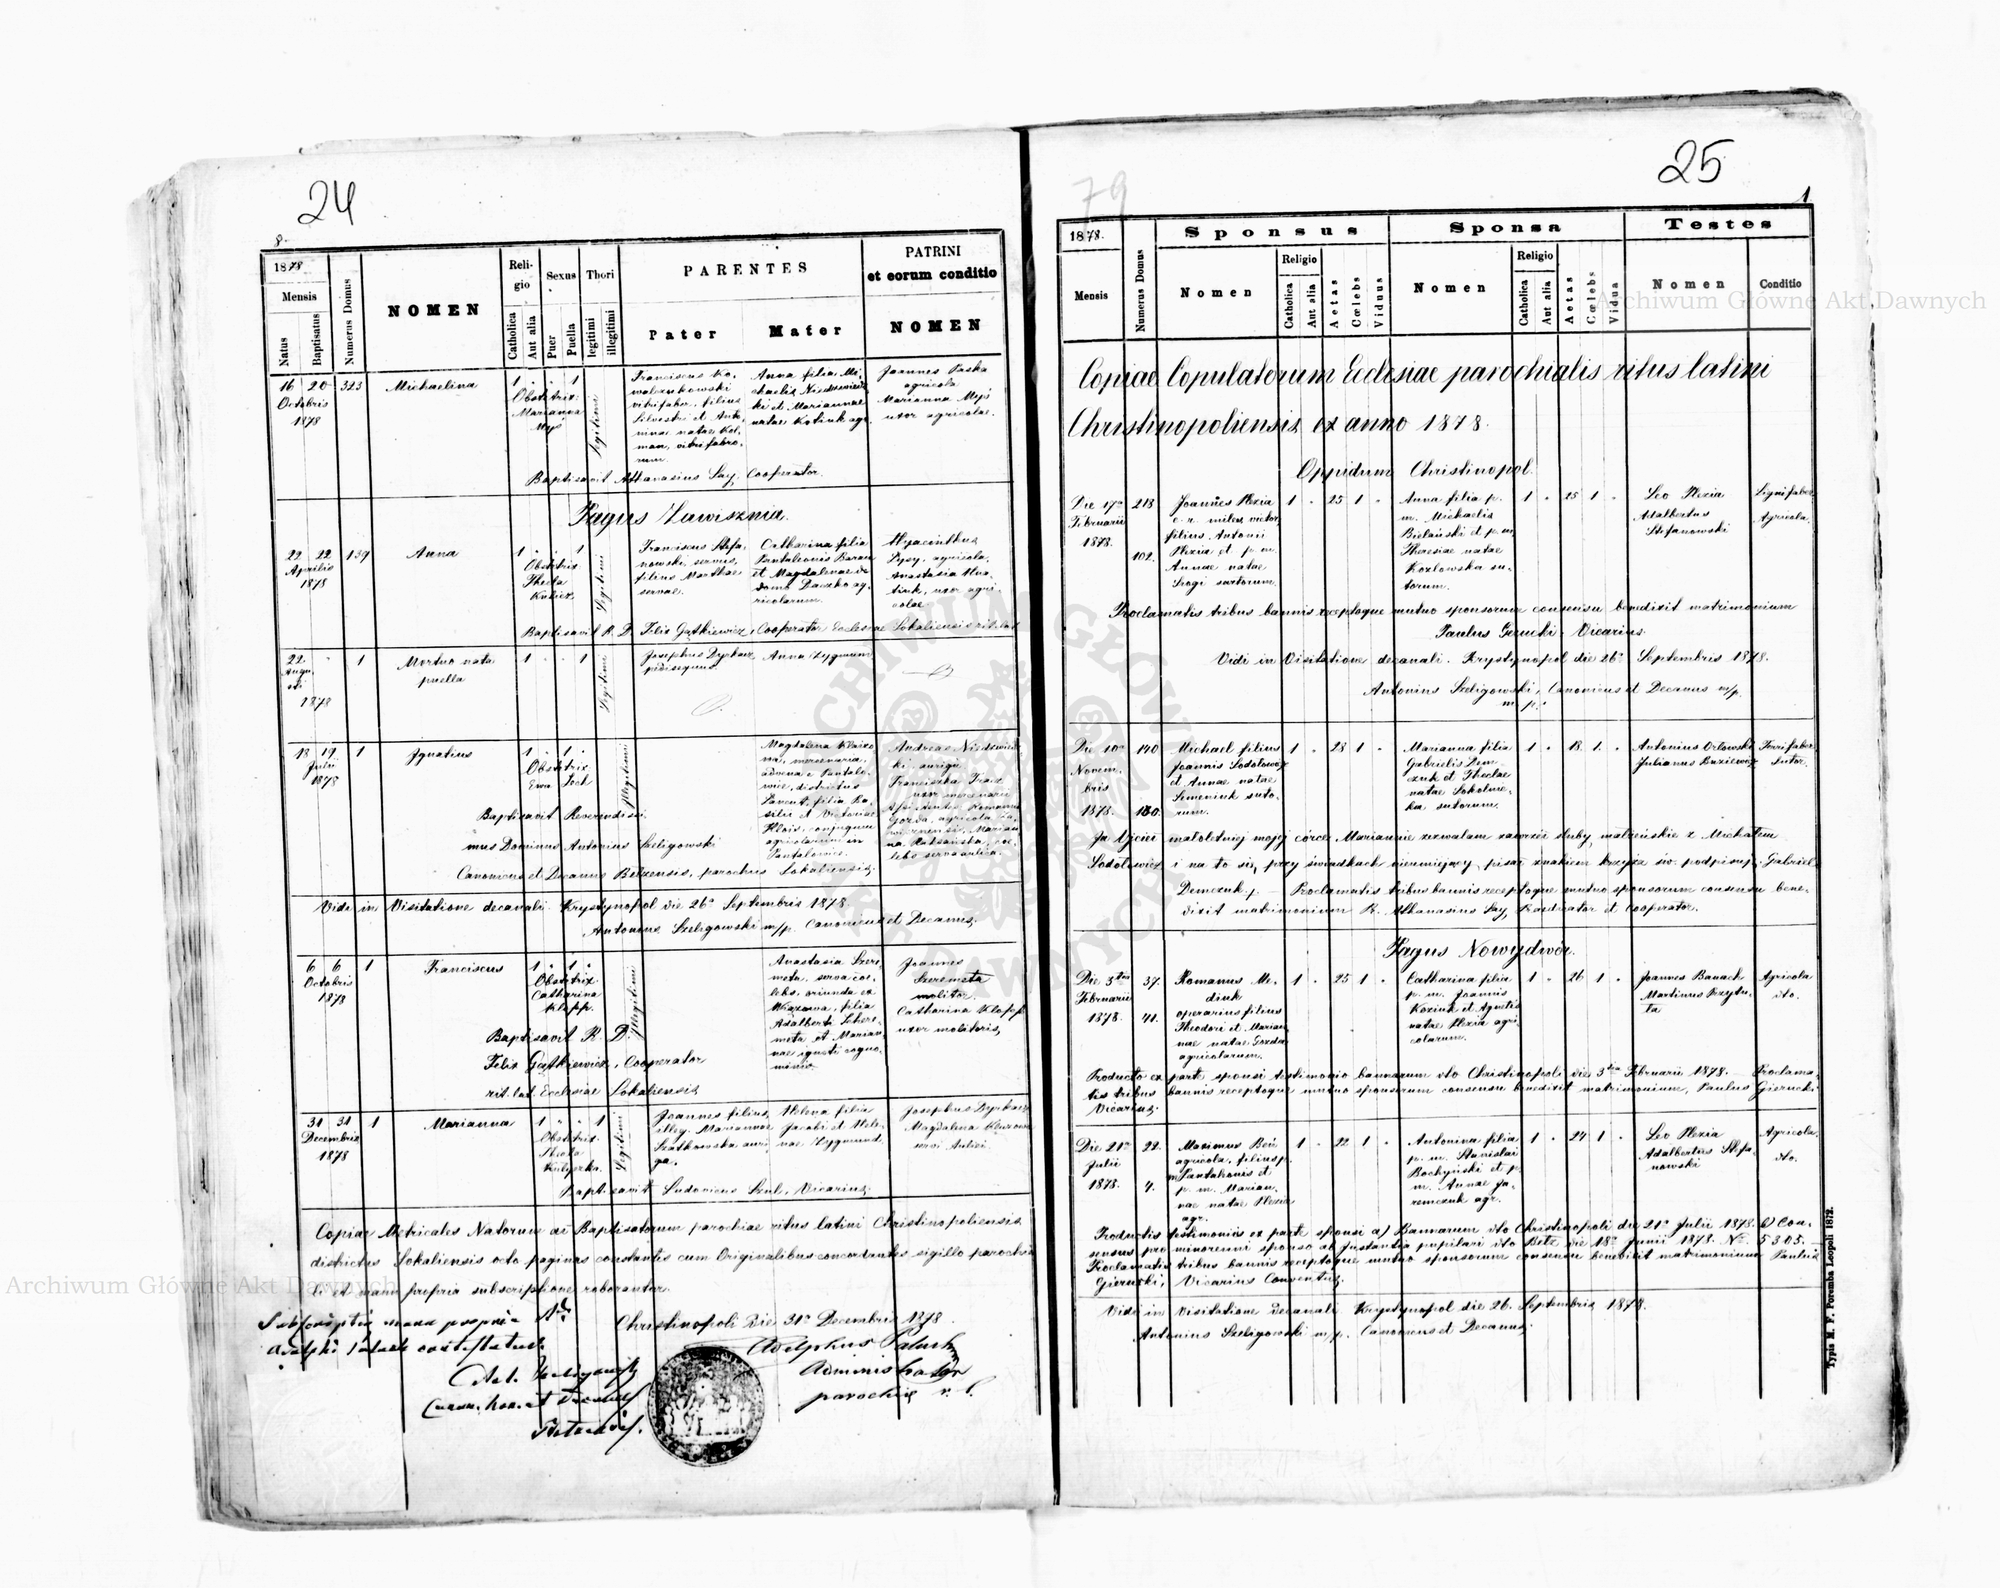 24
8.
1878
Mensis
Natus
Baptisatus
Numerus Domus
NOMEN
Religio
Catholica
Aut alia
Sexus
Puer
Puella
Thori
legitimi
illegitimi
PARENTES
Pater
Mater
PATRINI
et eorum conditio
NOMEN
16 20 323 Michaelina 1 " " 1
Octobris
1878
Obstetrix
Marianna
Legitimi
Franciscus Ko-
walczukowski
vitrifaber, filius
Silvestri et Anto-
ninae natae Kol-
man, vitrifabro-
rum.
Anna filia Mi-
chaelis Niedzwiedz-
ki et Mariannae
natae Kotiuk agr.
Joannes Paska
agricola
Marianna
uxor agricolae.
Baptisavit Athanasius Say, Cooperator.
Pagus Zawisznia.
22 22 139 Anna 1 " " 1
Aprilis
1878
Obstetrix
Thecla
Legitimi
Franciscus Stefa-
nowski, servus,
filius Marthae
servae.
Catharina filia
Pantaleonis Baran
et Magdalenae de
domo Daczko ag-
ricolarum.
Hyacinthus
agricola,
Anastasia
uxor agri-
colae
Baptisavit R. D. Felix Gątkiewicz, Cooperator Ecclesiae Sokaliensis rit. lat.
22 " 1 Mortuo nata 1 " " 1
Augu-
sti
1878
puella
Legitimi
Josephus
pedisequus
Anna Zygmunt
18 19 1 Ignatius 1 " 1 "
Julii
1878
Obstetrix
Ewa
Illegitimi
Magdalena
mercenaria,
advena e
districtus
filia Ba-
silii et Victoriae
conjugum
agricolarum in
Andreas Niedzwiedz-
ki, auriga
Franciszka
uxor mercenarii
Romanus
Gorda, agricola
Marian-
na
Baptisavit Reverendissi-
mus Dominus Antonius Szeligowski
Canonicus et Decanus Belzensis, parochus Sokaliensis
Vidi in Visitatione decanali. Krystynopol die 26a Septembris 1878
Antonius Szeligowski m/p. Canonicus et Decanus.
6 6 1 Franciscus 1 " 1 "
Octobris
1878
Obstetrix
Catharina
Klapp.
Illegitimi
Anastasia Szere-
meta, serva coe-
lebs, oriunda ex
filia
Adalberti Schere-
meta et Marian-
nae ignoti cogno-
minis
Joannes
Szeremeta
molitor.
Catharina Klapp
uxor molitoris,
Baptisavit R. D.
Felix Gątkiewicz, Cooperator
rit. lat. Ecclesiae Sokaliensis
31 31 1 Marianna 1 " " 1
Decembris
1878
Obstetrix
Thecla
Legitimi
Joannes filius
illeg. Mariannae
Szatkowska auri-
ga.
Helena filia
Jacobi et Hele-
nae Zygmund.
Josephus
Magdalena
Baptisavit Ludovicus Szul, Vicarius.
Copiae Metricales Natorum ac Baptisatorum parochiae ritus latini Christinopoliensis
districtus Sokaliensis octo paginas constantes cum Originalibus concordantes sigillo parochia-
li et manu propria subscriptione roborantur.
Christinopoli Die 31a Decembris 1878.
Subscriptio manu propria
Adolphus
Administrator
parochiae r. l.
79
25
1
1878.
Mensis
Numerus Domus
Sponsus
Nomen
Religio
Catholica
Aut alia
Aetas
Cœlebs
Viduus
Sponsa
Nomen
Religio
Catholica
Aut alia
Aetas
Cœlebs
Vidua
Testes
Nomen
Conditio
Copiae Copulatorum Ecclesiae parochialis ritus latini
Christinopoliensis ex anno 1878.
Oppidum Christinopol.
Die 17a
Februarii
1878.
213
102.
Joannes Plexia
c. r. miles,
filius Antonii
Plexia et p. m.
Annae natae
Srogi sartorum.
1 " 25 1 "
Anna filia p.
m. Michaelis
Bielański et p. m.
Theresiae natae
Kozlowska su-
torum.
1 " 25 1 "
Leo Plexia
Adalbertus
Stefanowski
Lignifaber
Agricola.
Proclamatis tribus bannis receptoque mutuo sponsorum consensu benedixit matrimonium
Paulus Giernski Vicarius.
Vidi in Visitatione decanali. Krystynopol die 26a Septembris 1878.
Antonius Szeligowski, Canonicus et Decanus m/p.
m. p.
Die 10a
Novem-
bris
1878.
140
130.
Michael filius
Joannis Sodolowicz
et Annae natae
Semeniuk suto-
rum.
1 " 28 1 "
Marianna filia
Gabrielis Dem-
czuk et Theclae
natae Sokolow-
ka sutorum.
1 " 18. 1. "
Antonius Orlowski
Julianus Buziewicz
Ferrifaber,
Sutor.
Ja Ojciec małoletniej mojej córce Mariannie zezwalam zawrzeć śluby małżeńskie z Michałem
Sodolowicz i na to się przy świadkach nieumiejący pisać znakiem krzyża św. podpisuję. Gabriel
Demczuk. p. — Proclamatis tribus bannis receptoque mutuo sponsorum consensu bene-
dixit matrimonium R. Athanasius Say, Praedicator et Cooperator.
Pagus Nowydwór.
Die 3tia
Februarii
1878.
37.
41.
Romanus Me-
diuk
operarius filius
Theodori et Marian-
nae natae Gorda
agricolarum.
1 " 25 1 "
Catharina filia
p. m. Joannis
Koziuk et Agnetis
natae Plexia agri-
colarum.
1 " 26 1 "
Joannes Banach
Martinus Przytu-
ła
Agricola
dto.
Producto ex parte sponsi testimonio bannorum dto Christinopoli die 3tia Februarii 1878. — Proclama-
tis tribus bannis receptoque mutuo sponsorum consensu benedixit matrimonium, Paulus Giernski
Vicarius.
Die 21a
Julii
1878.
22.
4.
Maximus Beń
agricola, filius p.
m. Pantaleonis et
p. m. Marian-
nae natae Plexia
agr.
1 " 22 1 "
Antonina filia
p. m. Stanislai
Bochyński et p.
m. Annae Ja-
remczuk agr.
1 " 24 1 "
Leo Plexia
Adalbertus Stefa-
nowski
Agricola.
dto.
Productis testimoniis ex parte sponsi a) Bannorum dto Christinopoli die 21a Julii 1878. b) Con-
sensus pro minorenni sponso ab Instantia pupilari dto Belz die 18a Junii 1878. No. 5305. —
Proclamatis tribus bannis receptoque mutuo sponsorum consensu benedixit matrimonium Paulus
Giernski, Vicarius Conventus.
Vidi in Visitatione decanali Krystynopol die 26. Septembris 1878.
Antonius Szeligowski m/p. Canonicus et Decanus.
Typis M. F. Poremba Leopoli 1872.
Archiwum Główne Akt Dawnych
Archiwum Główne Akt Dawnych